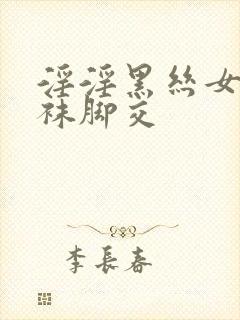 淫淫黑丝女
袜脚交
李長春